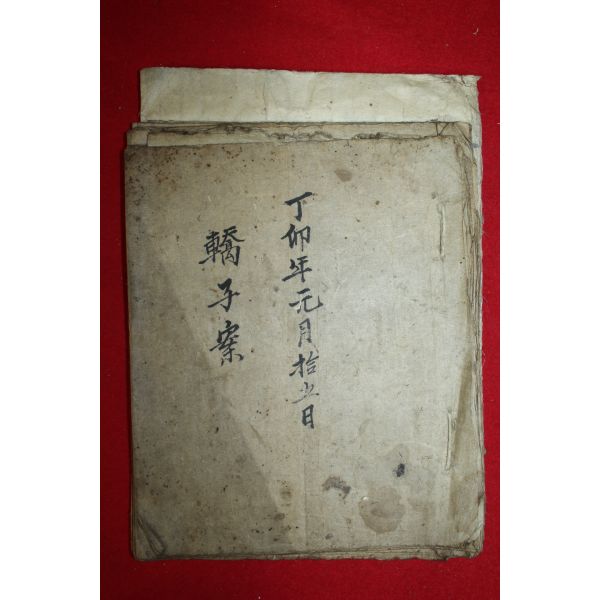 丁卯年元月拾五日
轎子案